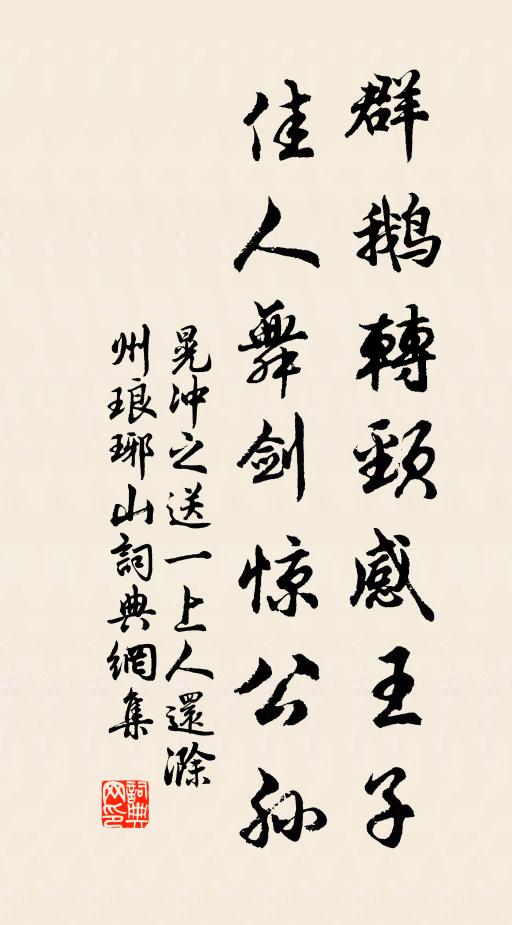 群鹅轉頸感王子
佳人舞剑惊公孫
晃冲之送一上人還滁
州琅琊山詞典網集
詞典网印